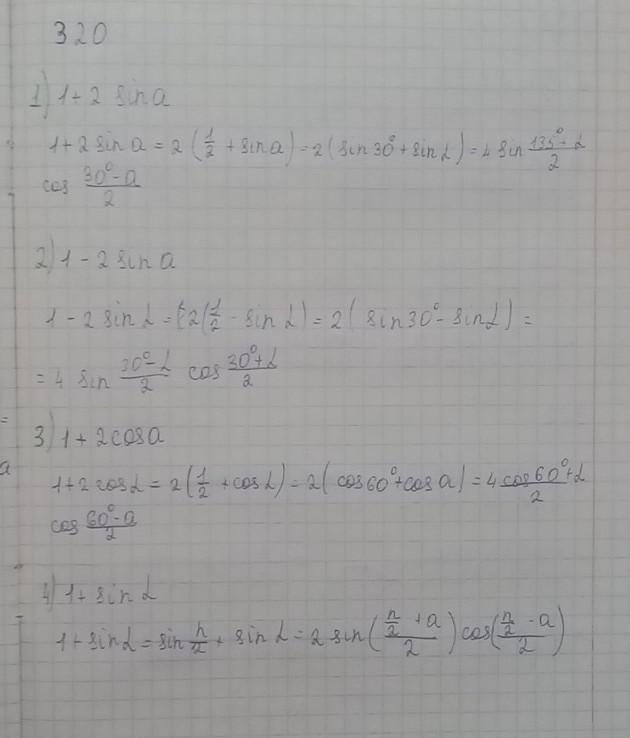 320
1) 1+2 sin a
1+2 sin a = 2 (1/2 + sin a) = 2 (sin 30° + sin α) = 4 sin (135° + α)/2
cos (30° - a)/2
2) 1 - 2 sin a
1 - 2 sin α = (2(1/2 - sin α) = 2( sin 30° - sin α) =
= 4 sin (30° - α)/2 cos (30° + α)/2
3) 1 + 2 cos a
1+2 cos α = 2(1/2 + cos α) = 2( cos 60° + cos a) = 4 cos 60° + α/2
cos (60° - a)/2
4) 1 + sin α
1 + sin α = sin π/2 + sin α = 2 sin ((π/2 + a)/2) cos((π/2 - a)/2)